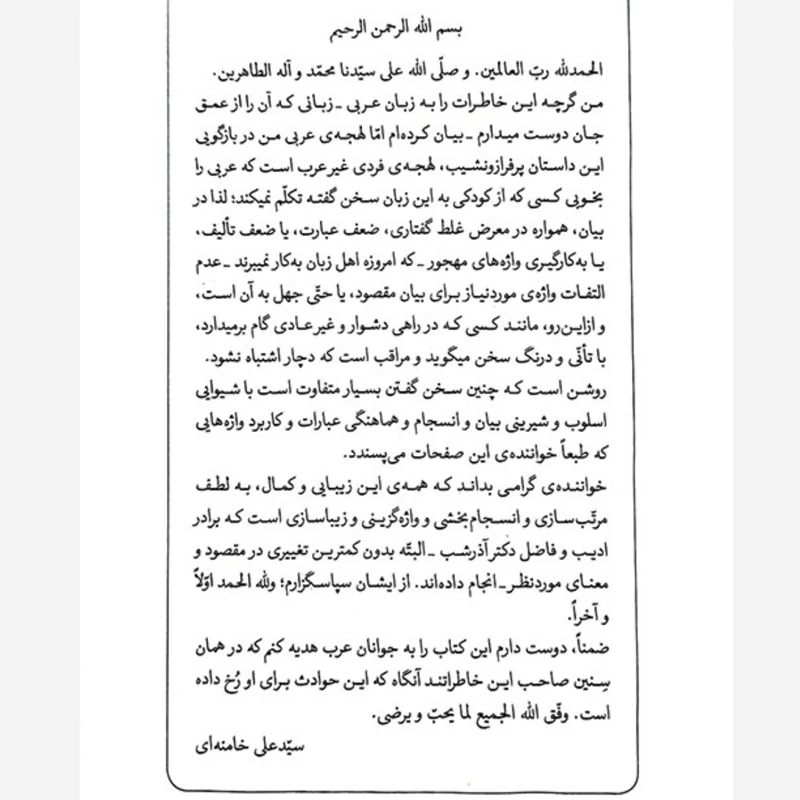 بسم الله الرحمن الرحیم
الحمدلله ربّ العالمین. و صلّی الله علی سیّدنا محمّد و آله الطاهرین.
من گرچه این خاطرات را به زبان عربی ـ زبانی که آن را از عمق
جان دوست میدارم ـ بیان کرده‌ام امّا لهجه‌ی عربی من در بازگویی
این داستان پرفرازونشیب، لهجه‌ی فردی غیرعرب است که عربی را
بخوبی کسی که از کودکی به این زبان سخن گفته تکلّم نمیکند؛ لذا در
بیان، همواره در معرض غلط گفتاری، ضعف عبارت، یا ضعف تألیف،
یا به‌کارگیری واژه‌های مهجور ـ که امروزه اهل زبان به‌کار نمیبرند ـ عدم
التفات واژه‌ی موردنیاز برای بیان مقصود، یا حتّی جهل به آن است،
و ازاین‌رو، مانند کسی که در راهی دشوار و غیرعادی گام برمیدارد،
با تأنّی و درنگ سخن میگوید و مراقب است که دچار اشتباه نشود.
روشن است که چنین سخن گفتن بسیار متفاوت است با شیوایی
اسلوب و شیرینی بیان و انسجام و هماهنگی عبارات و کاربرد واژه‌هایی
که طبعاً خواننده‌ی این صفحات می‌پسندد.
خواننده‌ی گرامی بداند که همه‌ی این زیبایی و کمال، به لطف
مرتّب‌سازی و انسجام‌بخشی و واژه‌گزینی و زیباسازی است که برادر
ادیب و فاضل دکتر آذرشب ـ البتّه بدون کمترین تغییری در مقصود و
معنای موردنظر ـ انجام داده‌اند. از ایشان سپاسگزارم؛ ولله الحمد اوّلاً
و آخراً.
ضمناً، دوست دارم این کتاب را به جوانان عرب هدیه کنم که در همان
سِنین صاحب این خاطراتند آنگاه که این حوادث برای او رُخ داده
است. وفّق الله الجمیع لما یحبّ و یرضی.
سیّدعلی خامنه‌ای